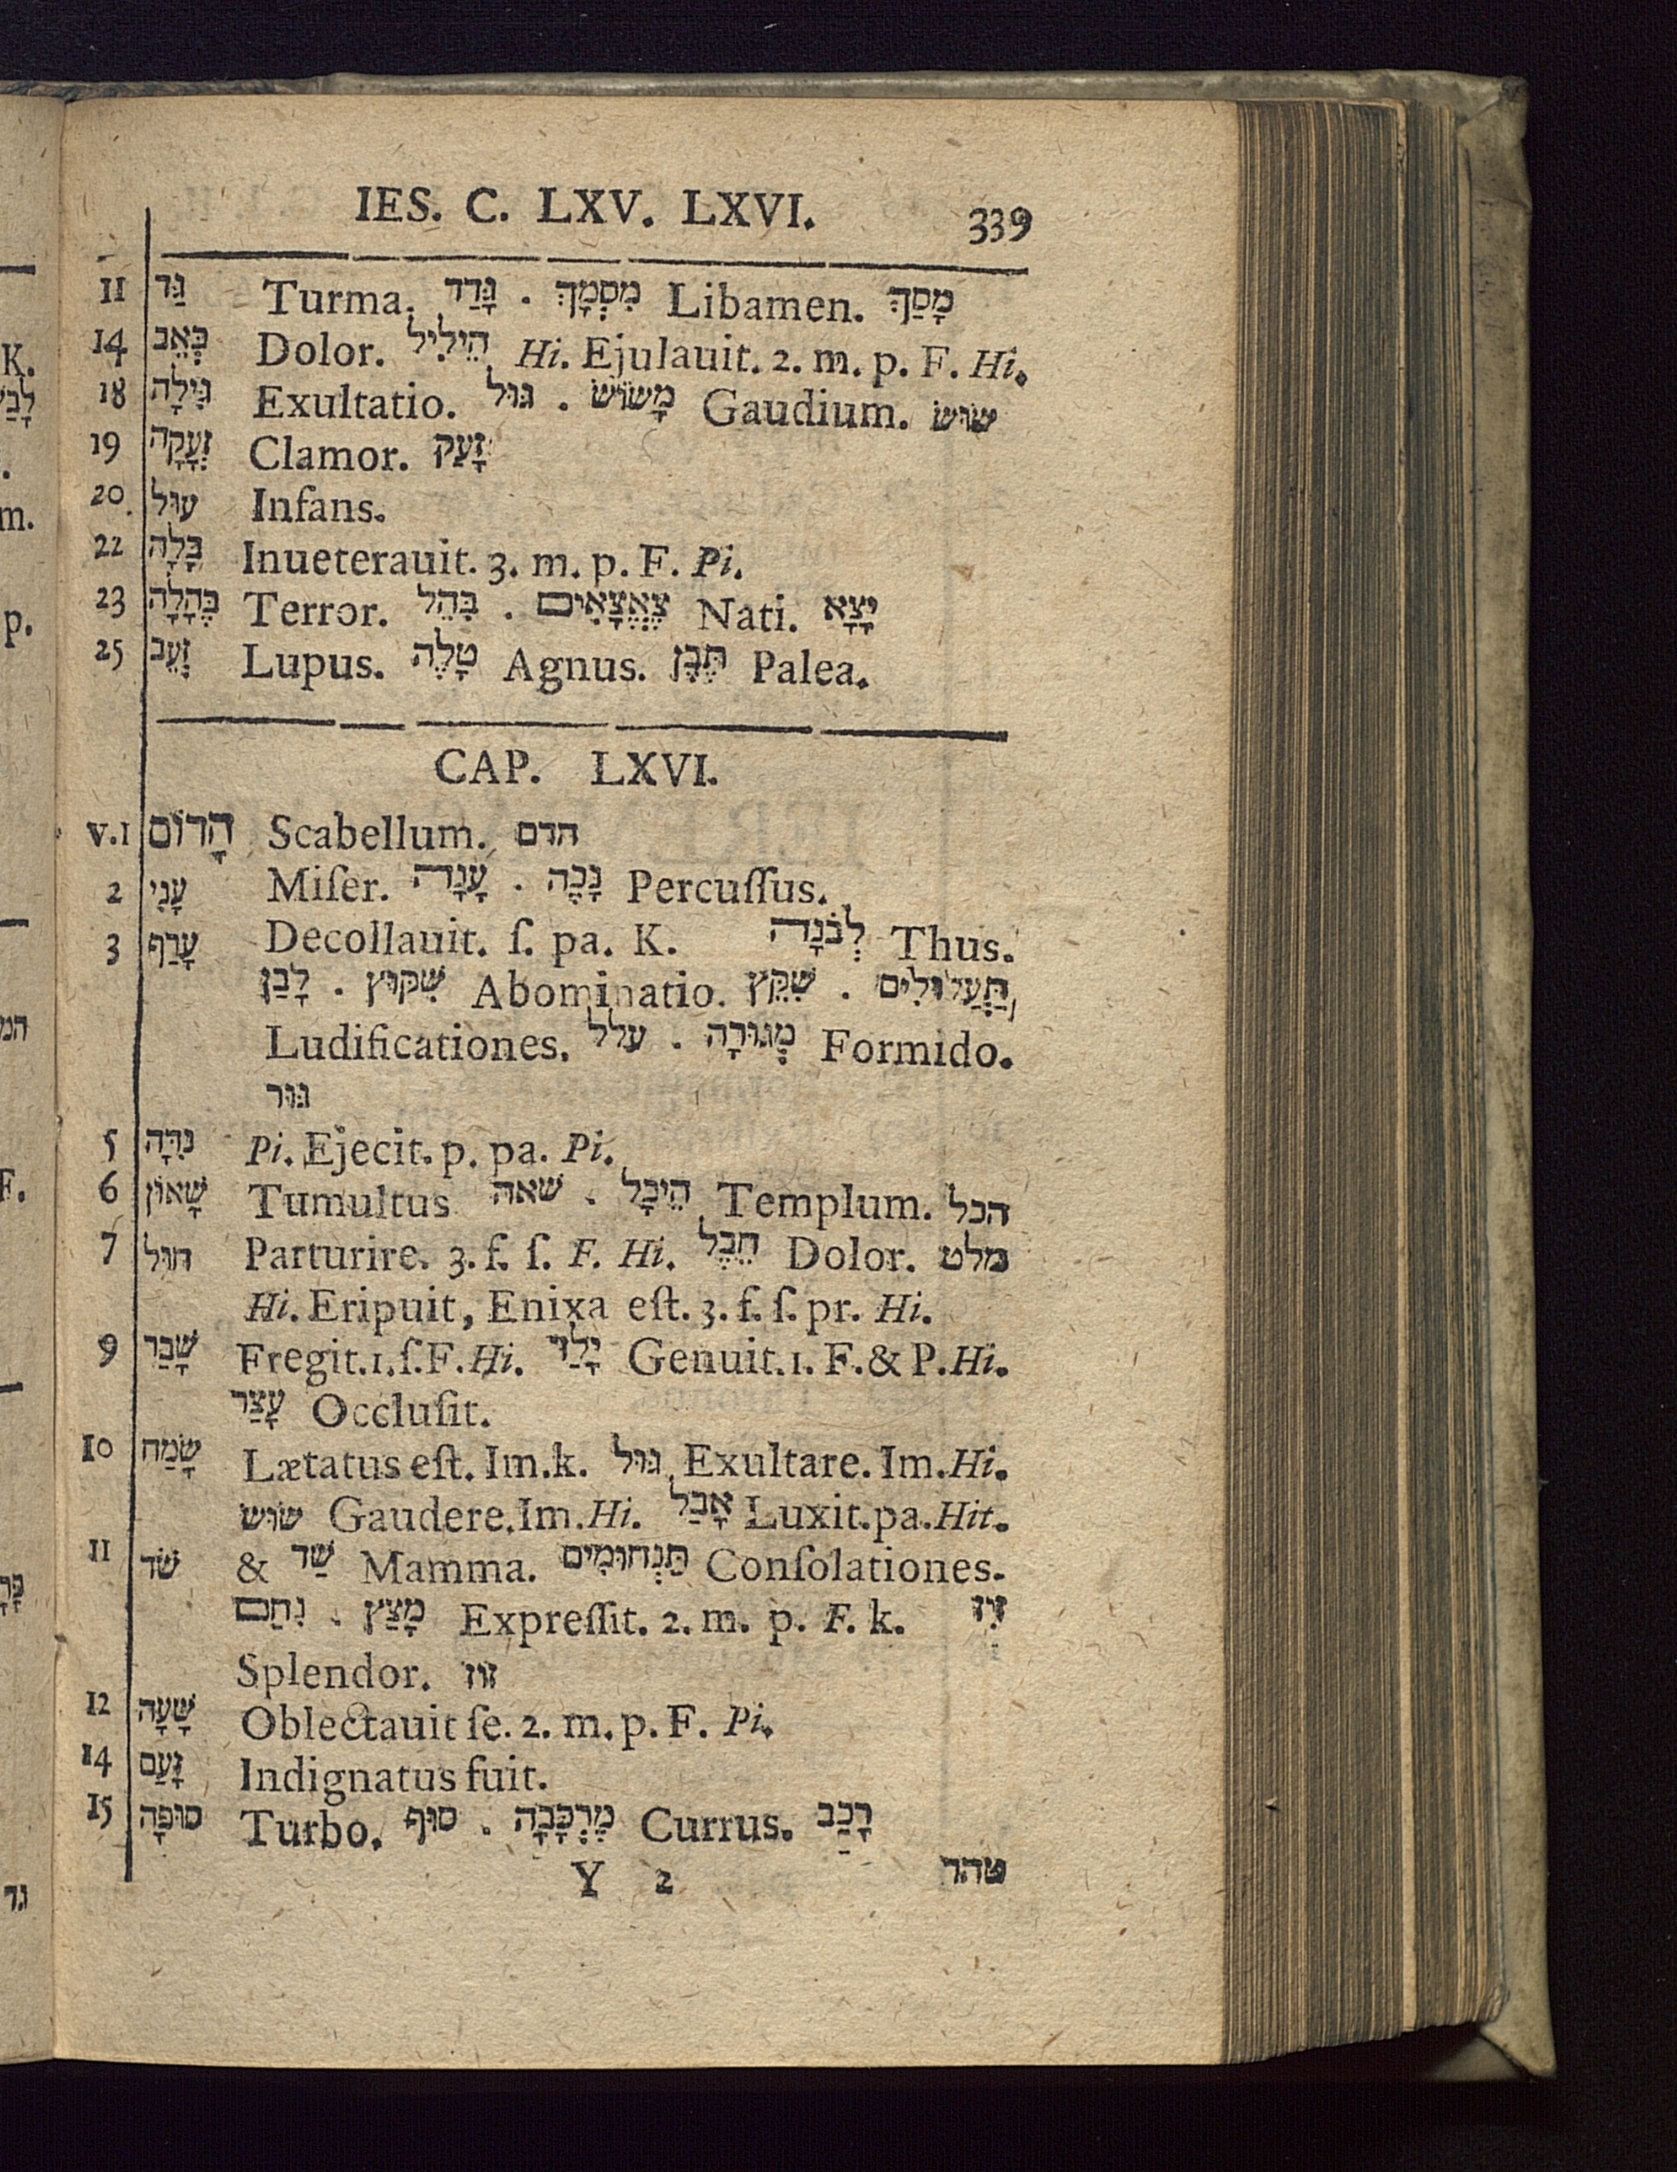 IES. C. LXV. LXVI. 339
11 גַּד Turma. גָּדַד . מִסְמָךְ Libamen. מָסַךְ
14 כְּאֵב Dolor. הֵילִיל Hi. Ejulauit. 2. m. p. F. Hi.
18 גִּילָה Exultatio. גּוּל . מָשׂוֹשׂ Gaudium. שׂוּשׂ
19 זְעָקָה Clamor. זָעַק
20. עוּל Infans.
22 בָּלָה Inueterauit. 3. m. p. F. Pi.
23 בֶּהָלָה Terror. בָּהֵל . צֶאֱצָאִים Nati. יָצָא
25 זְאֵב Lupus. טָלֶה Agnus. תֶּבֶן Palea.
CAP. LXVI.
v.1 הָרוֹם Scabellum. הדם
2 עָנִי Miſer. עָנָה . נָכֶה Percuſſus.
3 עָרַף Decollauit. ſ. pa. K. לְבֹנָה Thus.
לָבַן . שִׁקּוּץ Abominatio. שִׁקֵּץ . תַּעֲלוּלִים
Ludificationes. עלל . מְגוּרָה Formido.
גּוּר
5 נִדָּה Pi. Ejecit. p. pa. Pi.
6 שָׁאוֹן Tumultus שׁאה . הֵיכָל Templum. הכל
7 חוּל Parturire. 3. f. ſ. F. Hi. חֵבֶל Dolor. מלט
Hi. Eripuit, Enixa eſt. 3. f. ſ. pr. Hi.
9 שָׁבַר Fregit. 1. ſ. F. Hi. יָלַד Genuit. 1. F. & P. Hi.
עָצַר Occluſit.
10 שָׂמַח Lætatus eſt. Im. k. גּוּל Exultare. Im. Hi.
שׂוּשׂ Gaudere. Im. Hi. אָבַל Luxit. pa. Hit.
11 שֹׁד & שַׁד Mamma. תַּנְחוּמִים Conſolationes.
נִחַם . מָצַץ Expreſſit. 2. m. p. F. k. זִיז
Splendor. זוז
12 שָׁעָה Oblectauit ſe. 2. m. p. F. Pi.
14 זָעַם Indignatus fuit.
15 סוּפָה Turbo. סוּף . מֶרְכָּבָה Currus. רָכַב
Y 2 טהר